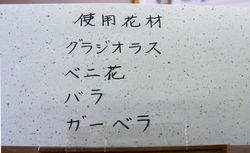 使用花材
グラジオラス
ベニ花
バラ
ガーベラ